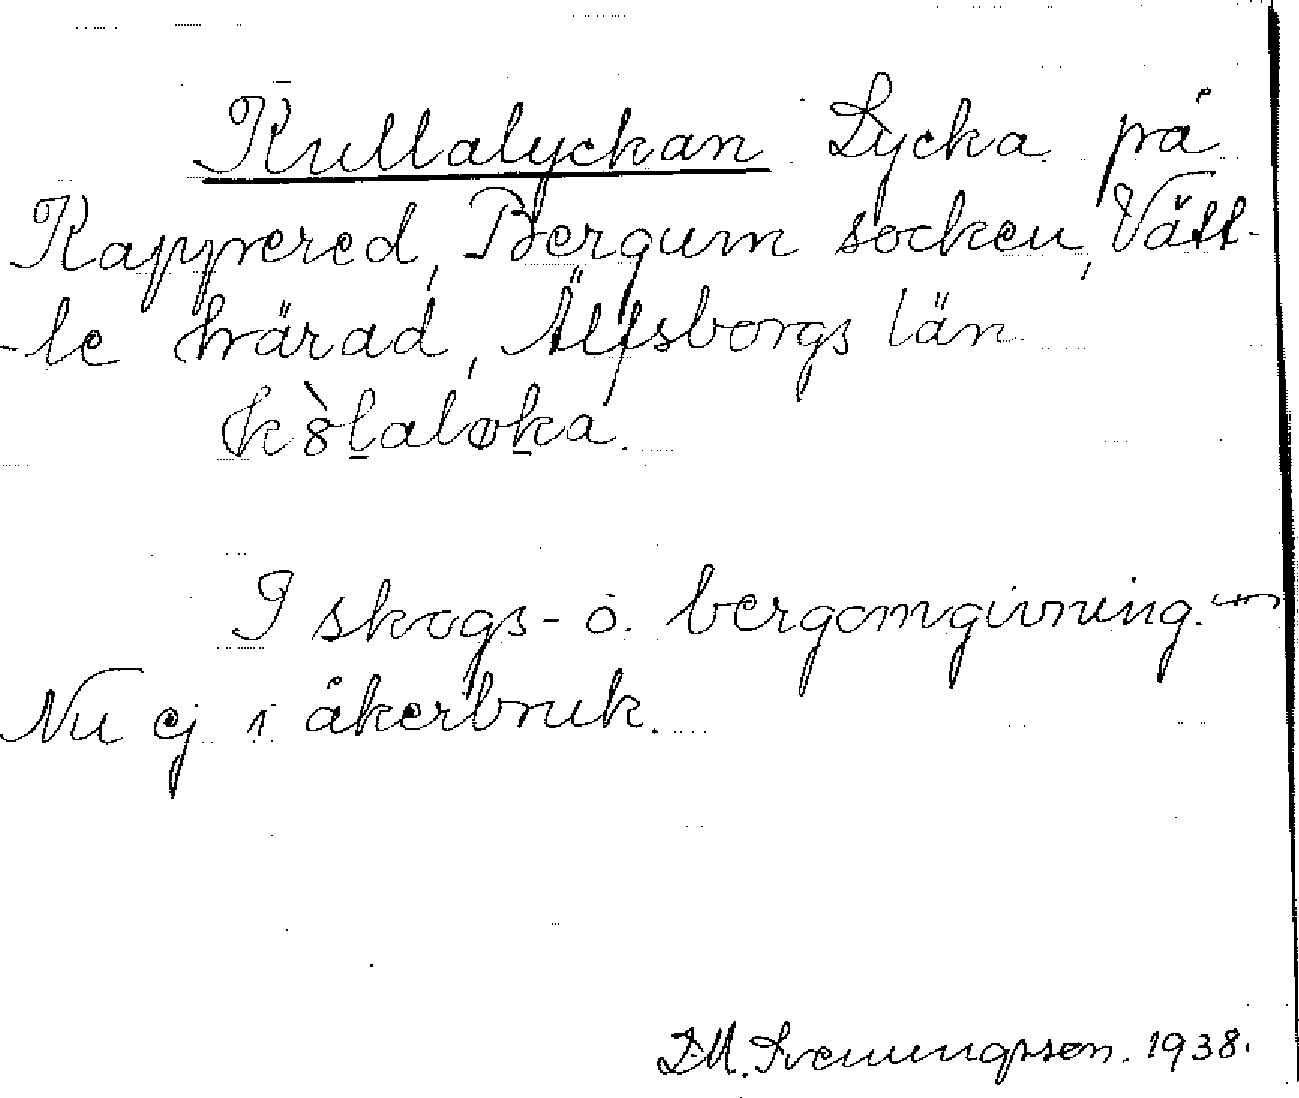 Kullalyckan Lycka på
Kappered, Bergum socken, Vätt-
-le härad, Älfsborgs län
k8̀lalɵka.
I skogs- o. bergomgivning. —
Nu ej i åkerbruk.
D.M. Svenungsson. 1938.